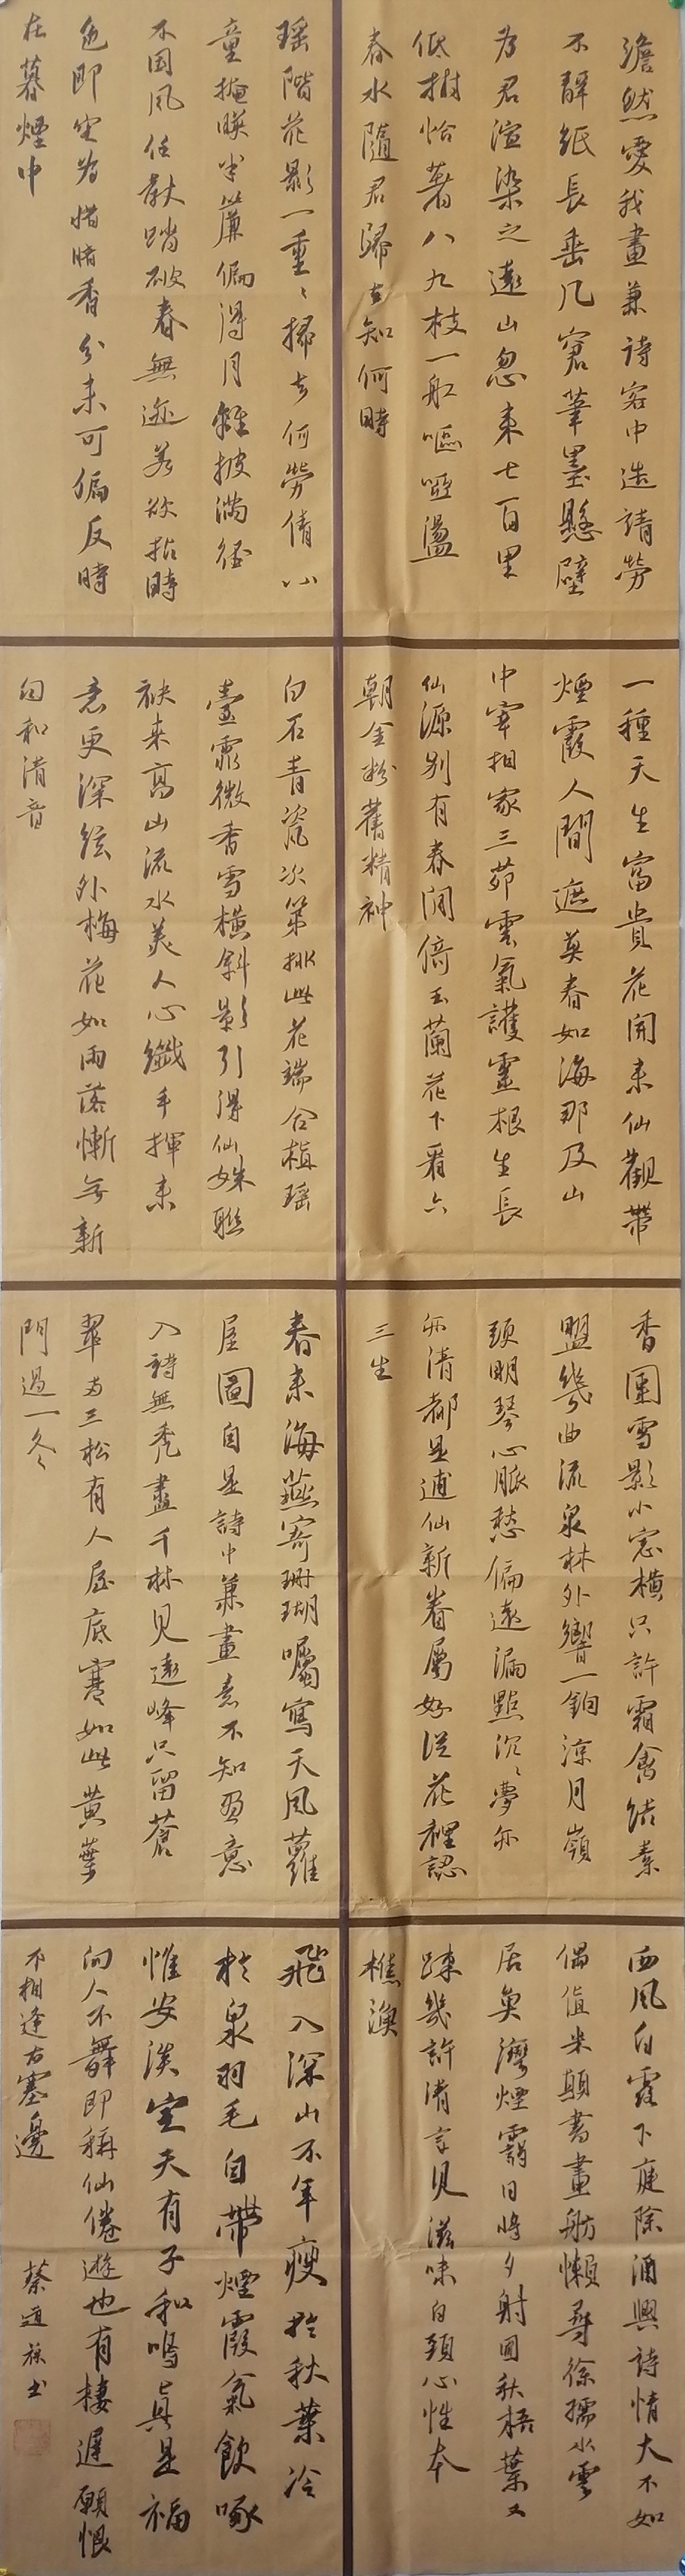 澹然愛我畫兼詩客中造請勞
不辭紙長垂几窗筆墨懸壁
為君渲染之遠山忽来七百里
低樹恰著八九枝一舡嘔啞盪
春水隨君歸去知何時
瑶階花影一重々掃去何勞倩小
童掩暎半簾偏得月離披滿徑
不因風任教踏破春無迹若欲拈時
色即空為惜暗香分未可偏反時
在暮煙中
一種天生富貴花開来仙觀帶
煙霞人間遮莫春如海那及山
中宰相家三茆雲氣護靈根生長
仙源別有春閒倚玉蘭花下看六
朝金粉舊精神
白石青瓷次第排此花端合植瑶
臺霏微香雪橫斜影引得仙姝聯
袂来高山流水美人心纖手揮来
意更深絃外梅花如雨落慚無新
句和清音
香團雪影小窓橫只許霜禽結素
盟幾曲流泉林外響一鉤涼月嶺
頭明琴心脈愁偏遠漏點沉々夢亦
亦清都是逋仙新眷屬好從花裡認
三生
春来海燕寄珊瑚囑寫天風蘿
屋圖自是詩中兼畫意不知畫意
入詩無禿盡千林見遠峰只留蒼
翠與三松有人屋底寒如此黄葉
門過一冬
西風白露下庭除酒興詩情大不如
偶值米顛書畫舫懶尋徐孺水雲
居魚灣煙靄日將夕射圃秋梧葉又
踈幾許清言見滋味白頭心性本
樵漁
飛入深山不年瘦於秋葉冷
於泉羽毛自帶煙霞氣飲啄
惟安淡定天有子和鳴真是福
向人不舞即稱仙倦遊也有棲遲願恨
不相逢古塞邊
蔡道 書